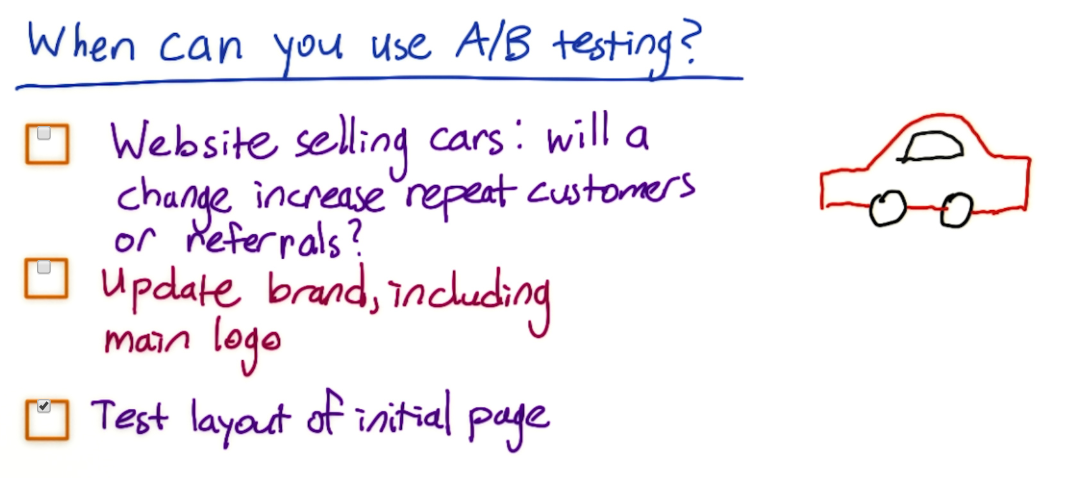 When can you use A/B testing?
Website selling cars: will a
change increase repeat customers
or referrals?
Update brand, including
main logo
Test layout of initial page